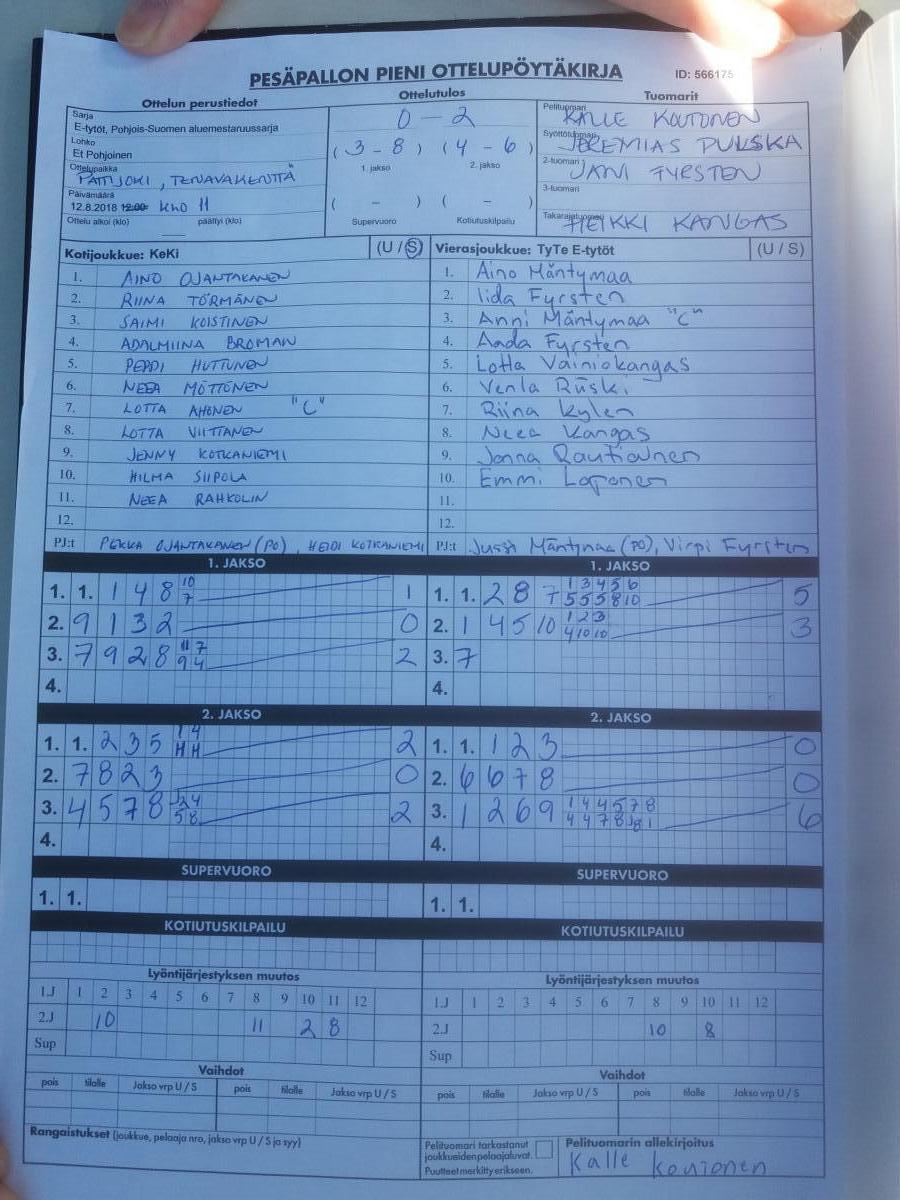 PESÄPALLON PIENI OTTELUPÖYTÄKIRJA
ID: 566175
Ottelun perustiedot
Ottelutulos
Tuomarit
Sarja
E-tytöt, Pohjois-Suomen aluemestaruussarja
Lohko
Et Pohjoinen
Ottelupaikka
PATTIJOKI, TENAVAKENTTÄ
Päivämäärä
12.8.2018 12:00 KLO 11
Ottelu alkoi (klo) päättyi (klo)
0 - 2
(3 - 8) (4 - 6)
1. jakso 2. jakso
( - ) ( - )
Supervuoro Kotiutuskilpailu
Pelituomari
KALLE KOUTONEN
Syöttötuomari
JEREMIAS PULSKA
2-tuomari
JANI FYRSTEN
3-tuomari
Takarajatuomari
HEIKKI KANGAS
Kotijoukkue: KeKi (U / S)
1. AINO OJANTAKANEN
2. RIINA TÖRMÄNEN
3. SAIMI KOISTINEN
4. ADALMIINA BROMAN
5. PEPPI HUTTUNEN
6. NEEA MÖTTÖNEN
7. LOTTA AHONEN "C"
8. LOTTA VIITTANEN
9. JENNY KOTKANIEMI
10. HILMA SIIPOLA
11. NEEA RAHKOLIN
12.
PJ:t PEKKA OJANTAKANEN (PO), HEIDI KOTKANIEMI
Vierasjoukkue: TyTe E-tytöt (U / S)
1. Aino Mäntymaa
2. Iida Fyrsten
3. Anni Mäntymaa "C"
4. Aada Fyrsten
5. Lotta Vainiokangas
6. Venla Ruski
7. Riina Kylen
8. Neea Kangas
9. Jonna Rautiainen
10. Emmi Laponen
11.
12.
PJ:t Jussi Mäntymaa (PO), Virpi Fyrsten
1. JAKSO
1. 1. 1 4 8 10 7 1
2. 9 1 3 2 0
3. 7 9 2 8 11 7 9 4 2
4.
1. JAKSO
1. 1. 2 8 7 1 3 4 5 6 5 5 5 8 10 5
2. 1 4 5 10 1 2 3 4 10 10 3
3. 7
4.
2. JAKSO
1. 1. 2 3 5 1 4 H H 2
2. 7 8 2 3 0
3. 4 5 7 8 2 4 5 8 2
4.
2. JAKSO
1. 1. 1 2 3 0
2. 6 6 7 8 0
3. 1 2 6 9 1 4 4 5 7 8 4 4 7 8 1 6
4.
SUPERVUORO
1. 1.
SUPERVUORO
1. 1.
KOTIUTUSKILPAILU
KOTIUTUSKILPAILU
Lyöntijärjestyksen muutos
1.J 1 2 3 4 5 6 7 8 9 10 11 12
2.J 10 11 2 8
Sup
Lyöntijärjestyksen muutos
1.J 1 2 3 4 5 6 7 8 9 10 11 12
2.J 10 8
Sup
Vaihdot
pois tilalle Jakso vrp U / S pois tilalle Jakso vrp U / S
Vaihdot
pois tilalle Jakso vrp U / S pois tilalle Jakso vrp U / S
Rangaistukset (joukkue, pelaaja nro, jakso vrp U / S ja syy)
Pelituomari tarkastanut
joukkueiden pelaajaluvat.
Puutteet merkitty erikseen.
Pelituomarin allekirjoitus
Kalle Koutonen